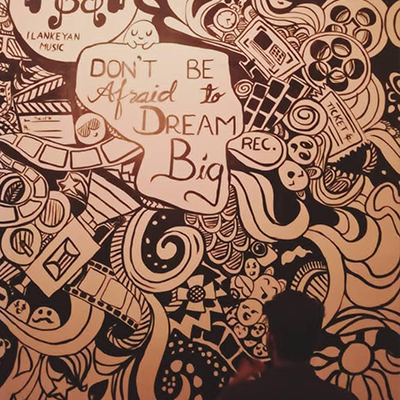 ILANKEYAN
MUSIC
DON'T BE
Afraid to
DREAM
Big
REC.
TICKET